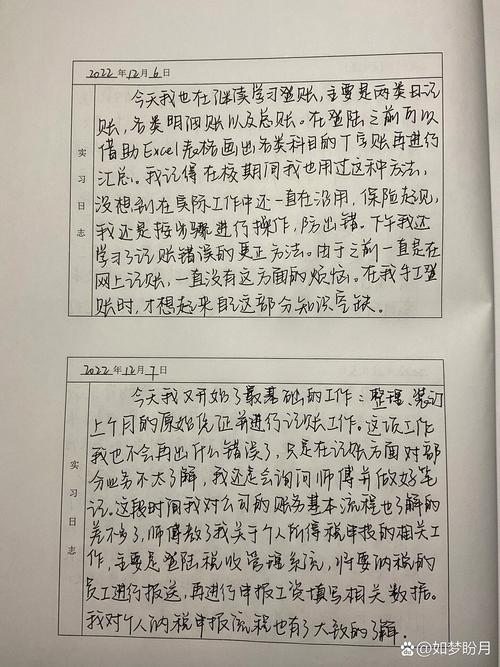 2022年12月6日
实习日志
今天我也在继续学习登账，主要是两类日记
账，各类明细账以及总账。在登陆之前可以
借助Excel表格画出各类科目的丁字账再进行
汇总。我记得在校期间我也用过这种方法，
没想到在实际工作中还一直在沿用，保险起见，
我还是按步骤进行操作，防出错。下午我还
学习了记账错误的更正方法。由于之前一直是在
网上记账，一直没有这方面的烦恼。在我手工登
账时，才想起来自己这部分知识空缺。
2022年12月7日
实习日志
今天我又开始了最基础的工作：整理、装订
上个月的原始凭证并进行记账工作。这项工作
我也不会再出什么错误了，只是在记账方面对部
分业务不太了解，我还是会询问师傅并做好笔
记。这段时间我对公司的账务基本流程也了解的
差不多了，师傅教了我关于个人所得税申报的相关工
作，主要是登陆税收管理系统，将要纳税的
员工进行报送，再进行申报工资填写相关数据。
我对个人纳税申报流程也有了大致的了解.
@如梦盼月